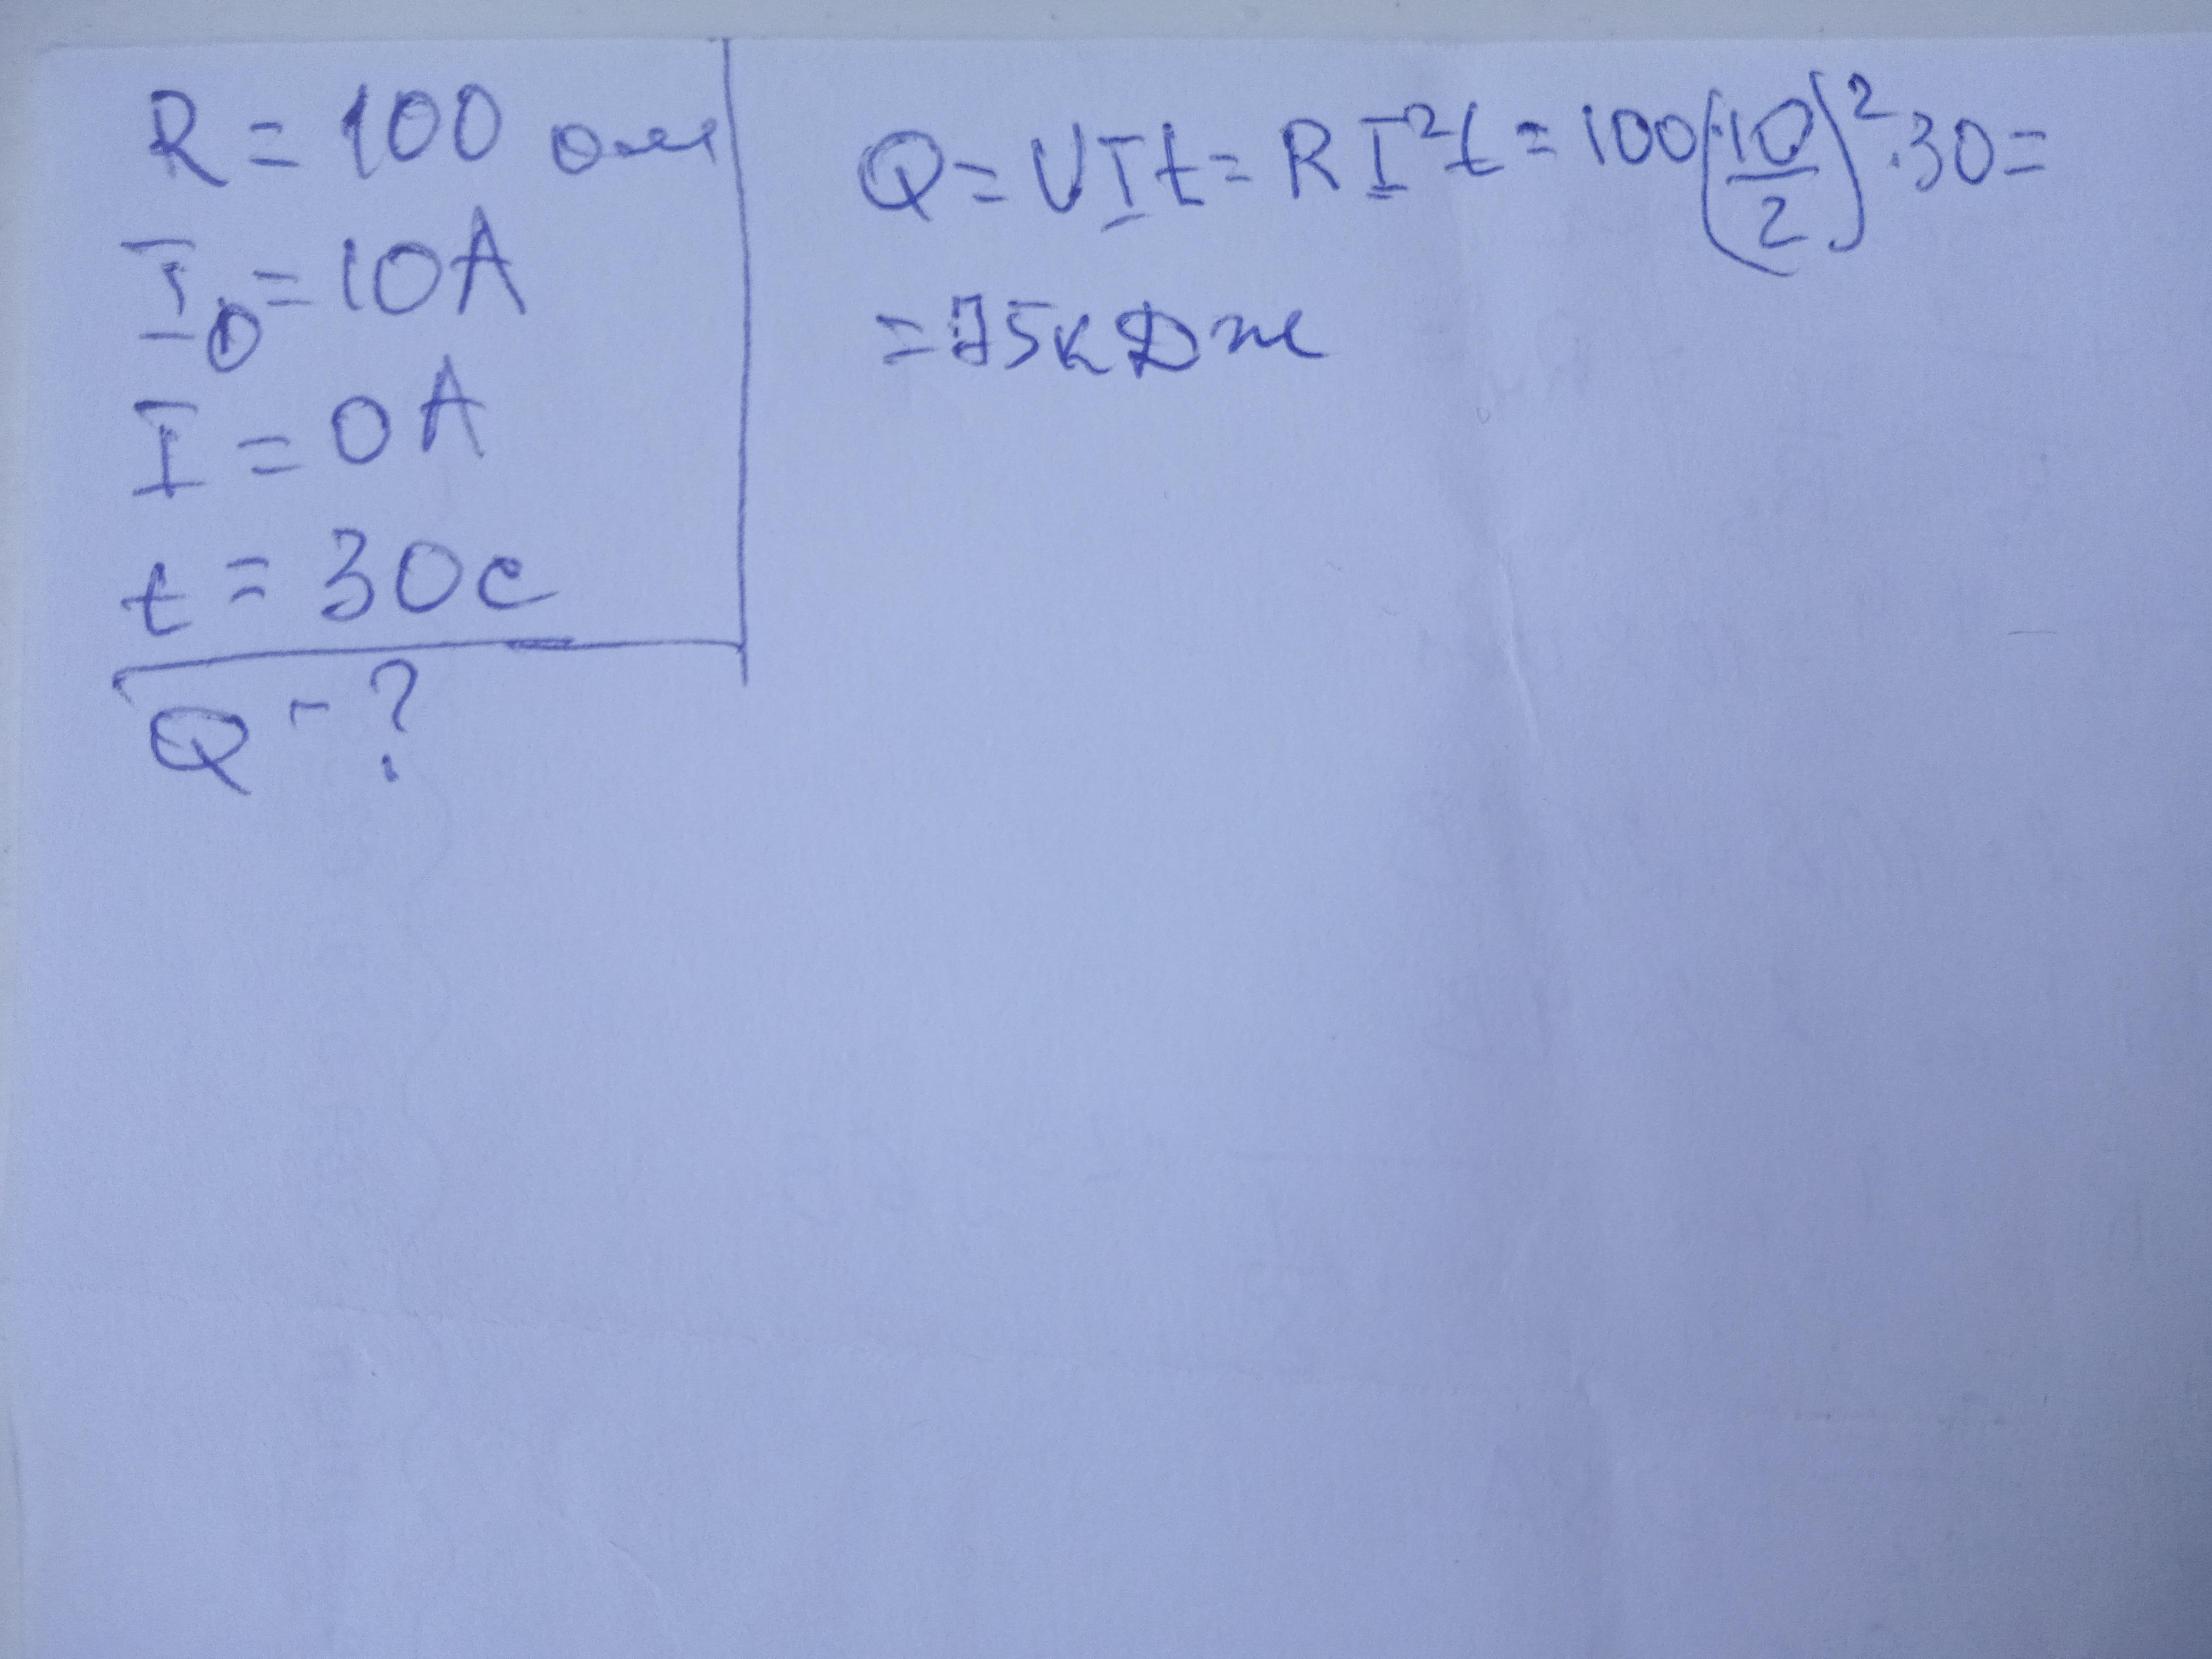 R = 100 ом
I₀ = 10А
I = 0А
t = 30с
Q - ?
Q = UIt = RI²t = 100(10/2)²·30=
= 75кДж